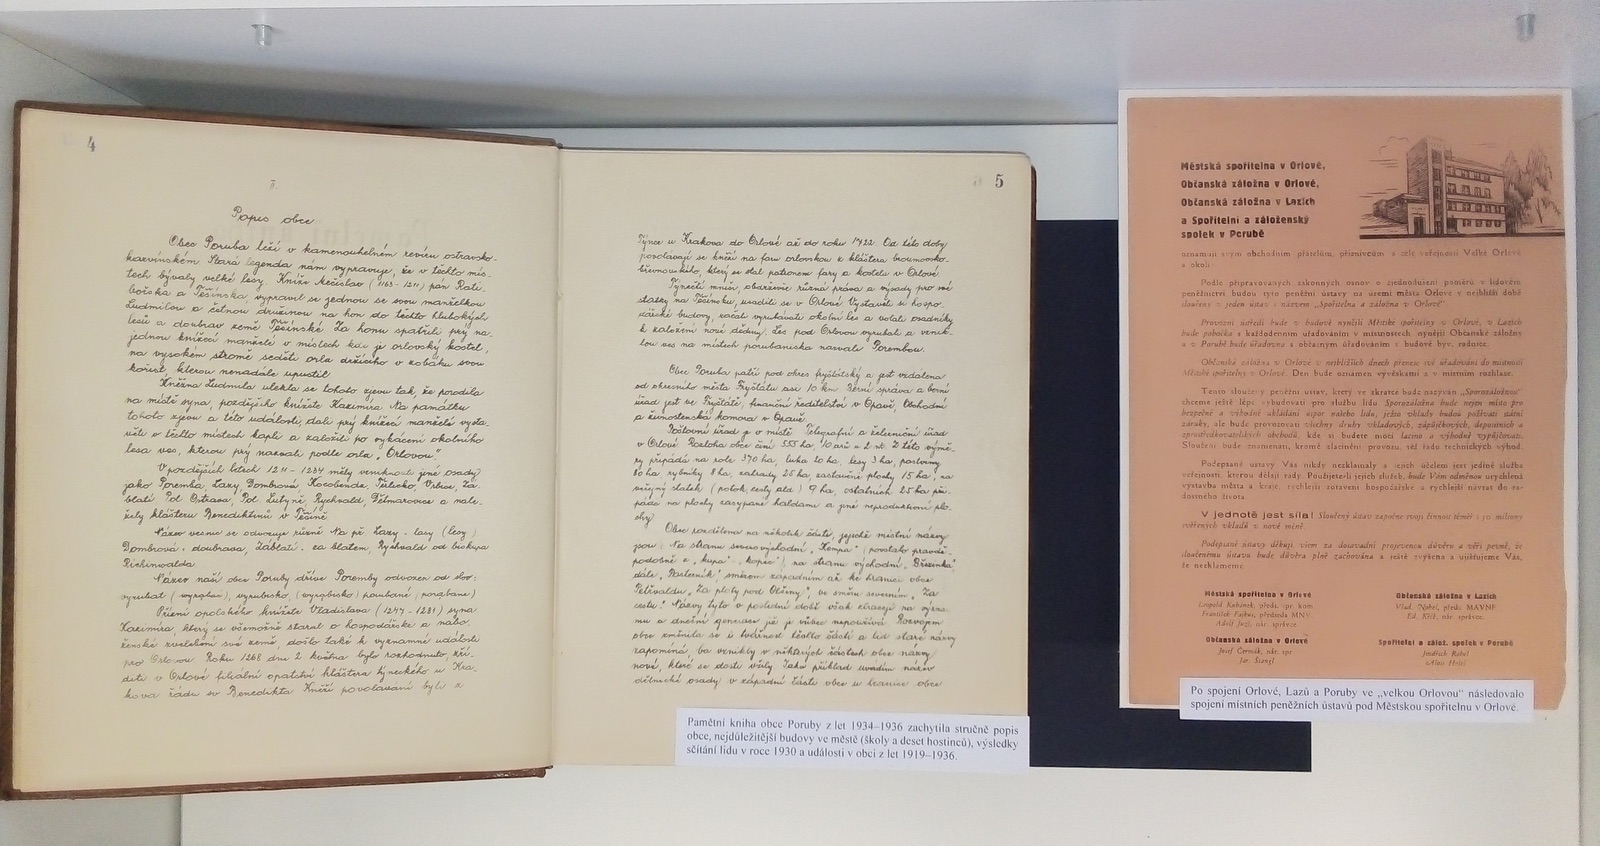 4
II.
Popis obce
Obec Poruba leží v kamenouhelném revíru ostravsko-
karvinském. Stará legenda nám vypravuje, že v těchto mís-
tech bývaly velké lesy. Kníže Měčislav (1163-1211) pán Rati-
bořska a Těšínska, vypravil se jednou se svou manželkou
Ludmilou a četnou družinou na hon do těchto hlubokých
lesů a doubrav země Těšínské. Za honu spatřili prý na-
jednou knížecí manželé v místech kde je orlovský kostel,
na vysokém stromě seděti orla držícího v zobáku svou
kořist, kterou nenadále upustil.
Kněžna Ludmila ulekla se tohoto zjevu tak, že porodila
na místě syna, pozdějšího knížete Kazimíra. Na památku
tohoto zjevu a této události, dali prý knížecí manželé vysta-
věti v těchto místech kapli a založili po vykácení okolního
lesa ves, kterou prý nazvali podle orla, „Orlovou".
V pozdějších letech 1211-1234 měly vzniknouti jiné osady
jako Poremba, Lazy, Dombrová, Kocobendz, Věřňovice, Za-
blatí, Pol. Ostrava, Pol. Lutyně, Rychvald, Dětmarovice a nále-
žely klášteru Benediktinů v Týnci.
Název vesnic se odvozuje různě. Na př. Lazy - lasy (lesy)
Dombrová - doubrava, Záblatí - za blatem, Rychvald od biskupa
Richinvalda
Název naší obce Poruby dříve Poremby odvozen od slov:
vyrubat (wyrąbać), vyrubisko, (wyrąbisko) poubané (porąbane)
Přízní opolského knížete Vladislava (1247-1281) syna
Kazimíra, který se všemožně staral o hospodářské a nábo-
ženské zvelebení své země, došlo také k významné události
pro Orlovou. Roku 1268 dne 2. května bylo rozhodnuto, zří-
diti v Orlové filiální opatství kláštera týneckého u Kra-
kova řádu sv. Benedikta. Kněží povoláváni byli z
5
Týnce u Krakova do Orlové až do roku 1722. Od této doby
povolávají se kněží na faru orlovskou z kláštera broumovsko-
břevnovského, který se stal patronem fary a kostela v Orlové.
Týnečtí mniši, obdrževše různá práva a výsady pro své
statky na Těšínsku, usadili se v Orlové. Vystavěli si hospo-
dářské budovy, začali vyrubávati okolní les a volali osadníky
k založení nové dědiny. Les pod Orlovou vyrubali a vznik-
lou ves na místech porubaniska nazvali Porembou.
Obec Poruba patří pod okres fryštátský a jest vzdálena
od okresního města Fryštátu asi 10 km. Berní správa a berní
úřad jest ve Fryštátě, finanční ředitelství v Opavě, Obchodní
a živnostenská komora v Opavě.
Poštovní úřad je v místě. Telegrafní a železniční úřad
v Orlové. Rozloha obce činí 555 ha, 10 arů a 2 m². Z této výmě-
ry připadá na role 370 ha, luka 20 ha, lesy 3 ha, pastviny
80 ha, rybníky 8 ha, zahrady 25 ha zastavené plochy 15 ha, na
veřejný statek (potok, cesty atd) 9 ha, ostatních 25 ha při-
padá na plochy zasypané haldami a jiné neproduktivní plo-
chy.
Obec rozdělena na několik částí, jejichž místní názvy
jsou: Na stranu severovýchodní „Kempa" (povstalo pravdě-
podobně z „kupa" - kopec), na stranu východní „Březinka",
dále „Pasterník" směrem západním až ke hranici obce
Petřvaldu „Za ploty pod Olšiny", ve směru severním „Za
cestu." Názvy tyto v poslední době však ztrácejí na význa-
mu a dnešní generace již je vůbec nepoužívá. Rozvojem
obce změnila se i tvářnost těchto částí a lid staré názvy
zapomíná, ba vznikly v některých částech obce názvy
nové, které se dosti vžily. Jako příklad uvádím název
dělnické osady v západní části obce u hranic obce
Pamětní kniha obce Poruby z let 1934–1936 zachytila stručně popis
obce, nejdůležitější budovy ve městě (školy a deset hostinců), výsledky
sčítání lidu v roce 1930 a události v obci z let 1919–1936.
Městská spořitelna v Orlové,
Občanská záložna v Orlové,
Občanská záložna v Lazích
a Spořitelní a záloženský
spolek v Porubě
oznamují svým obchodním přátelům, příznivcům a celé veřejnosti Velké Orlové
a okolí:
Podle připravovaných zákonných osnov o zjednodušení poměrů v lidovém
peněžnictví budou tyto peněžní ústavy na území města Orlové v nejbližší době
sloučeny v jeden ústav s názvem „Spořitelna a záložna v Orlové".
Provozní ústředí bude v budově nynější Městské spořitelny v Orlové, v Lazích
bude pobočka s každodenním úřadováním v místnostech nynější Občanské záložny
a v Porubě bude úřadovna s občasným úřadováním v budově býv. radnice.
Občanská záložna v Orlové v nejbližších dnech přenese své úřadování do místností
Městské spořitelny v Orlové. Den bude oznámen vývěskami a v místním rozhlase.
Tento sloučený peněžní ústav, který ve zkratce bude nazýván „Sporozáložnou"
chceme ještě lépe vybudovati pro službu lidu. Sporozáložna bude nejen místo pro
bezpečné a výhodné ukládání úspor našeho lidu, jehož vklady budou požívati státní
záruky, ale bude provozovati všechny druhy vkladových, zápůjčkových, depositních a
zprostředkovatelských obchodů, kde si budete moci lacino a výhodně vypůjčovati.
Sloučení bude znamenati, kromě zlacinění provozu, též řadu technických výhod.
Podepsané ústavy Vás nikdy nezklamaly a jejich účelem jest jedině služba
veřejnosti, kterou dělají rády. Použijete-li jejich služeb, bude Vám odměnou urychlená
výstavba města a kraje, rychlejší zotavení hospodářské a rychlejší návrat do ra-
dostného života.
V jednotě jest síla! Sloučený ústav započne svoji činnost téměř s 150 miliony
svěřených vkladů v nové měně.
Podepsané ústavy děkují všem za dosavadní projevenou důvěru a věří pevně, že
sloučenému ústavu bude důvěra plně zachována a ještě zvýšena a ujišťujeme Vás,
že nezklameme.
Městská spořitelna v Orlové
Leopold Kubánek, předs. spr. kom.
František Fajkus, předseda MNV
Adolf Juzl, nár. správce
Občanská záložna v Lazích
Vlad. Nobel, předs. MAVNF
Ed. Kříž, nár. správce
Občanská záložna v Orlové
Josef Čermák, nár. spr.
Jar. Štangl
Spořitelní a zálož. spolek v Porubě
Jindřich Rabel
Alois Holeš
Po spojení Orlové, Lazů a Poruby ve „velkou Orlovou" následovalo
spojení místních peněžních ústavů pod Městskou spořitelnu v Orlové.